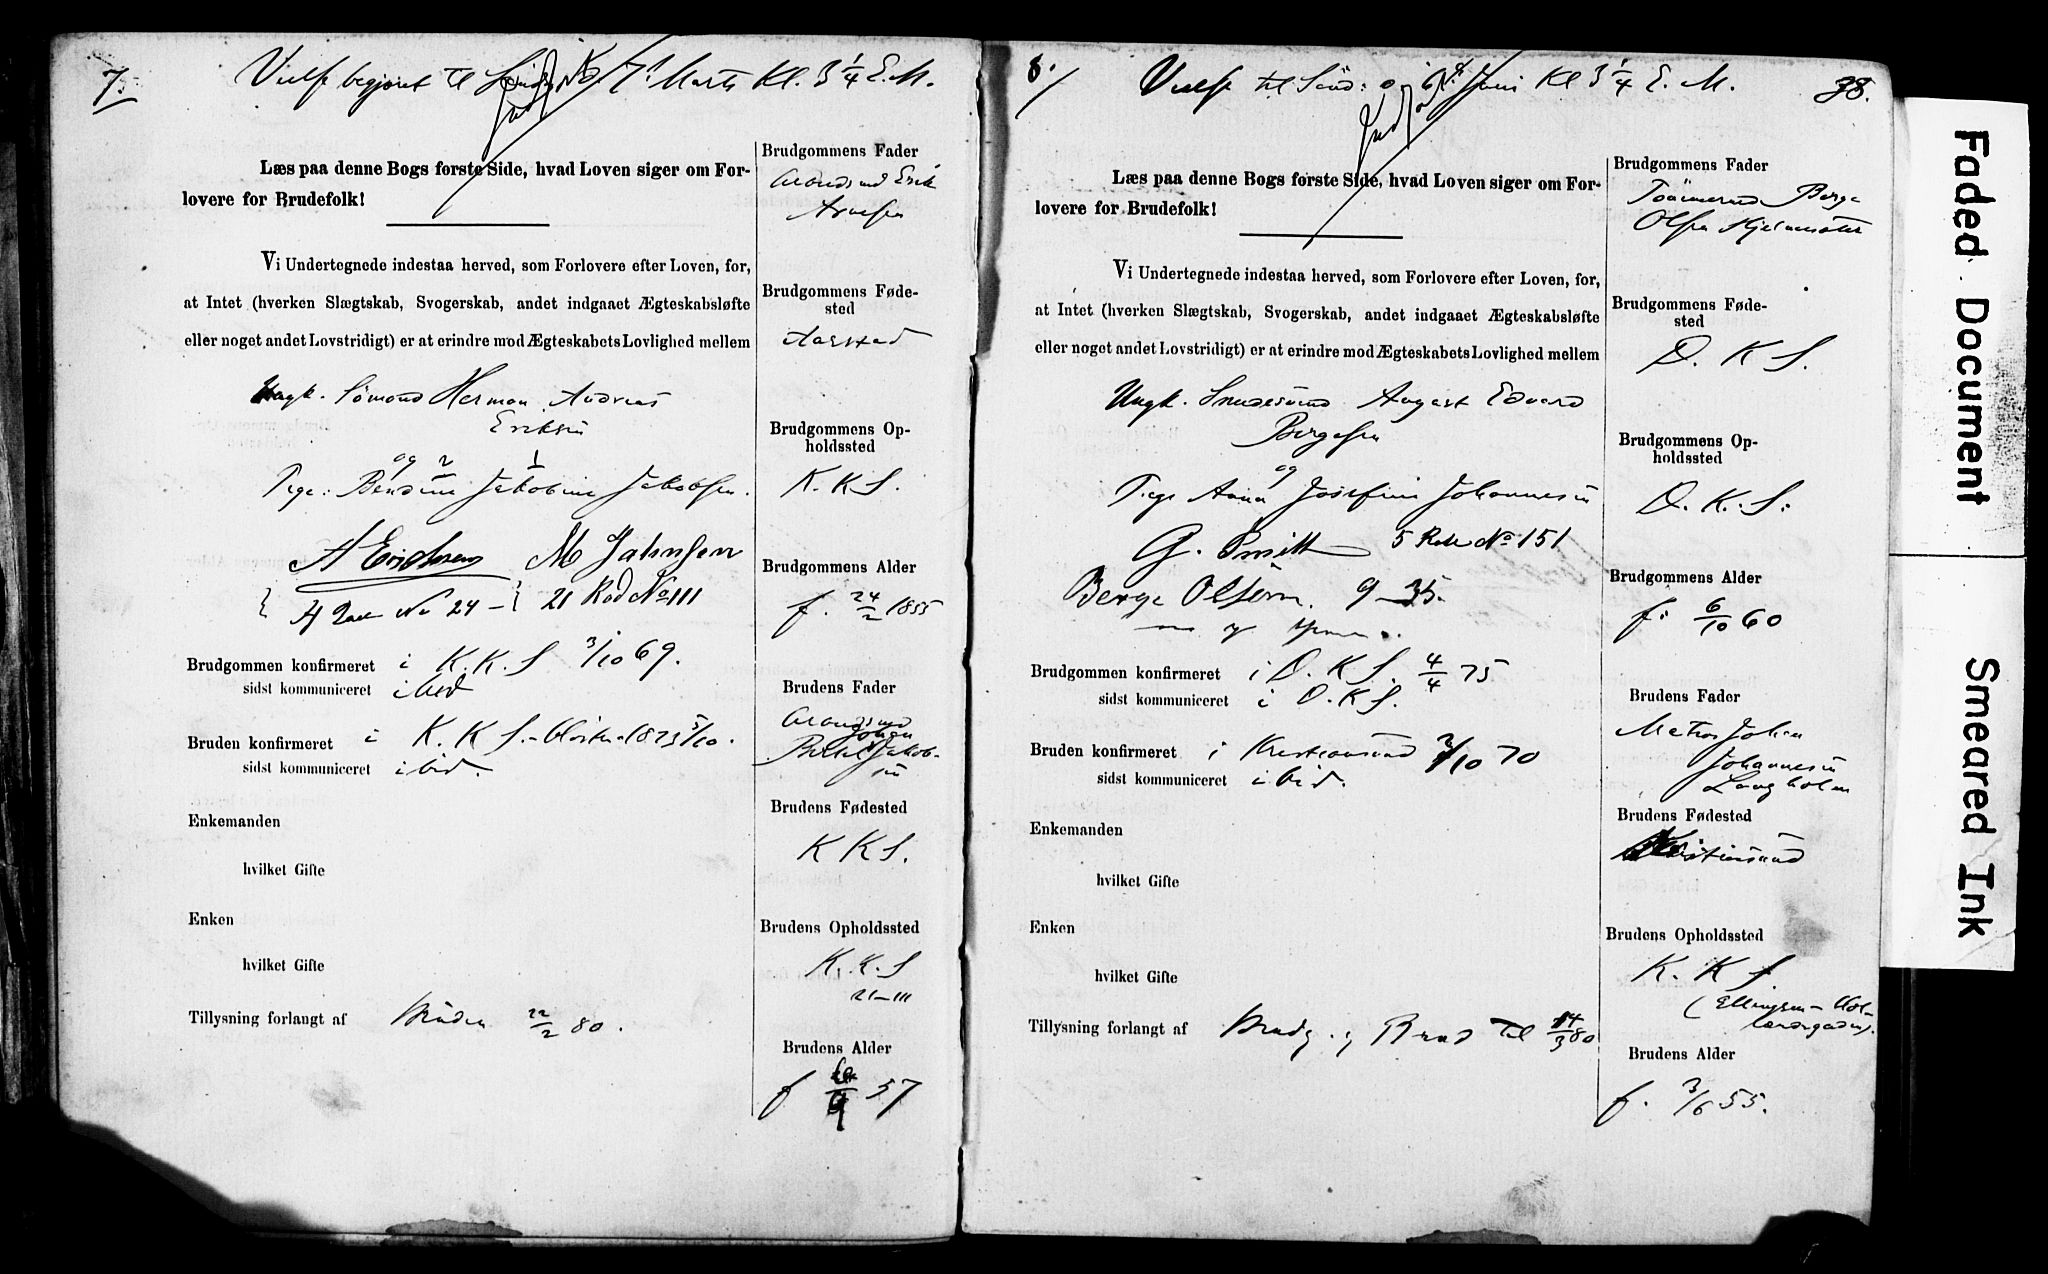 7.
Vielse begjært til Søndag 7de Marts Kl. 3 1/4 E.M.
Læs paa denne Bogs første Side, hvad Loven siger om For-
lovere for Brudefolk!
Vi Undertegnede indestaa herved, som Forlovere efter Loven, for,
at Intet (hverken Slægtskab, Svogerskab, andet indgaaet Ægteskabsløfte
eller noget andet Lovstridigt) er at erindre mod Ægteskabets Lovlighed mellem
Ungk. Sømand Herman Andreas
Eriksen
og 2 1
Pige: Bendine Jakobine Jakobsen.
A Erichsen M Jahnsen
No 24 – 21 Rod No 111
Brudgommen konfirmeret i K.K.S 3/10 69.
sidst kommuniceret ibid
Bruden konfirmeret i K. K S. 1873 5/10.
sidst kommuniceret ibid.
Enkemanden
hvilket Gifte
Enken
hvilket Gifte
Tillysning forlangt af Bruden 22/2 80.
Brudgommens Fader
Arbeidsmd Erik
Arnesen
Brudgommens Føde-
sted
Aarstad
Brudgommens Op-
holdssted
K. K S.
Brudgommens Alder
f. 24/2 1855
Brudens Fader
Arbeidsmd
Johan
Jakob-
sen
Brudens Fødested
K K S.
Brudens Opholdssted
K. K. S
21–111
Brudens Alder
f 57
8.
Vielse til Sønd: 6te Juni Kl 3 1/4 E. M.
38.
Læs paa denne Bogs første Side, hvad Loven siger om For-
lovere for Brudefolk!
Vi Undertegnede indestaa herved, som Forlovere efter Loven, for,
at Intet (hverken Slægtskab, Svogerskab, andet indgaaet Ægteskabsløfte
eller noget andet Lovstridigt) er at erindre mod Ægteskabets Lovlighed mellem
Ungk. Snedkersvend August Edvard
Børgesen
og
Pige Anna Josefine Johannesen
G. Smitt 5 Rode No 151
Berge Olsen. 9–35.
Brudgommen konfirmeret i D. K S. 4/4 75
sidst kommuniceret i D. K S.
Bruden konfirmeret i Kristiansund 2/10 70
sidst kommuniceret ibid.
Enkemanden
hvilket Gifte
Enken
hvilket Gifte
Tillysning forlangt af Brudg. og Brud til 14/3 80
Brudgommens Fader
Tømmermd Berge
Olsen
Brudgommens Føde-
sted
D. K S.
Brudgommens Op-
holdssted
D. K. S.
Brudgommens Alder
f. 6/10 60
Brudens Fader
Matros Johan
Johannesen
Langholm
Brudens Fødested
Kristiansund
Brudens Opholdssted
K. K S
(Ellingsen – Hol-
lændergaden).
Brudens Alder
f. 3/6 55.
Faded Document
Smeared Ink